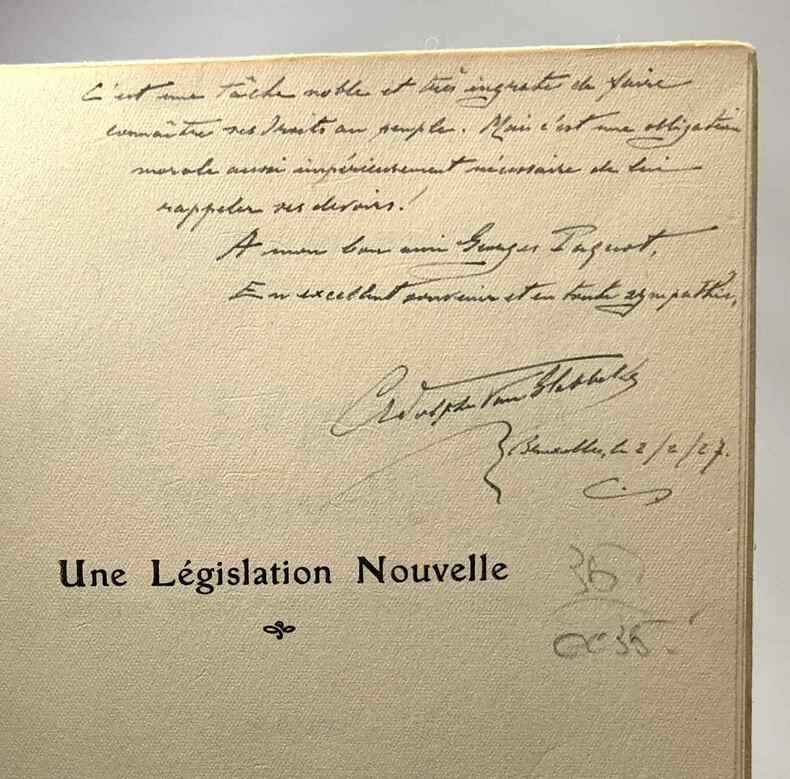 C'est une tâche noble et très ingrate de faire
connaître ses droits au peuple. Mais c'est une obligation
morale aussi impérieusement nécessaire de lui
rappeler ses devoirs!
A mon bon ami Georges Paquot,
En excellent souvenir et en toute sympathie,
Adolphe Van
Bruxelles, le 2/2/27.
Une Législation Nouvelle
35